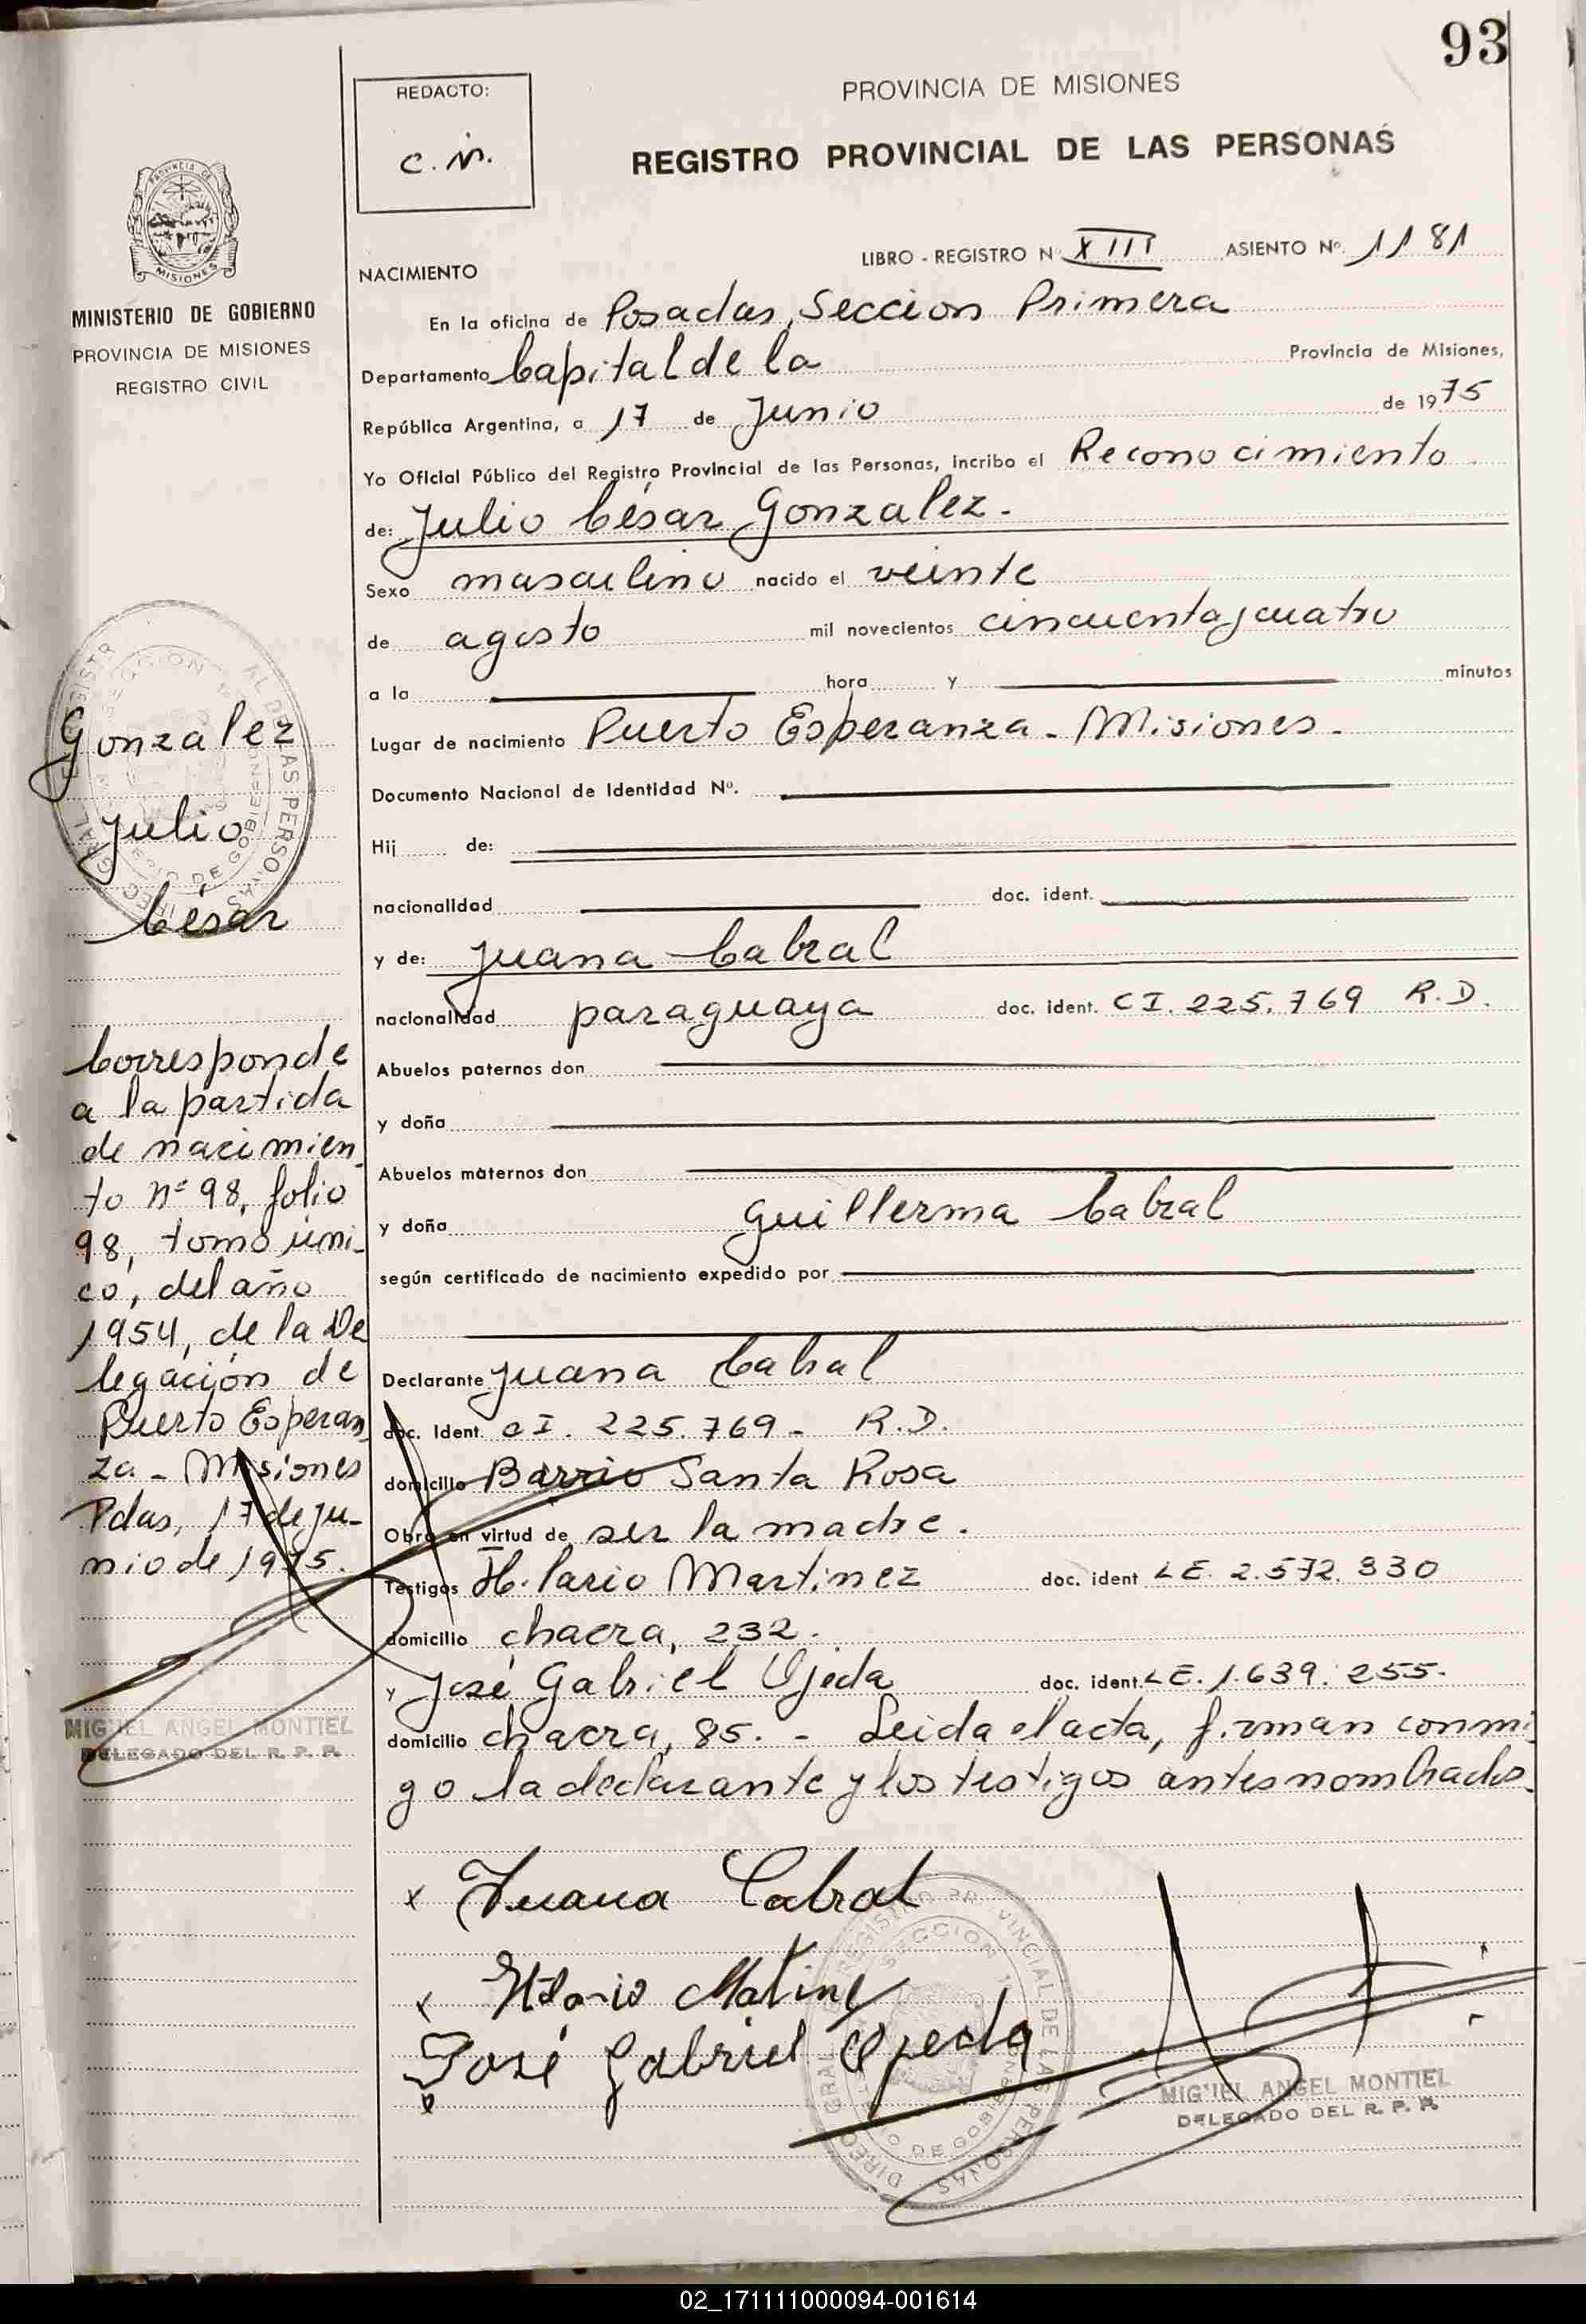 93
REDACTO:
C. M.
PROVINCIA DE MISIONES
REGISTRO PROVINCIAL DE LAS PERSONAS
MISIONES
MINISTERIO DE GOBIERNO
PROVINCIA DE MISIONES
REGISTRO CIVIL
LIBRO - REGISTRO Nº XIII ASIENTO Nº 1181
NACIMIENTO
En la oficina de Posadas, Seccion Primera
Departamento Capital de la Provincia de Misiones,
República Argentina, a 17 de Junio de 1975
Yo Oficial Público del Registro Provincial de las Personas, incribo el Reconocimiento
de: Julio César Gonzalez.
Sexo masculino nacido el veinte
de agosto mil novecientos cincuenta y cuatro
a la hora y minutos
Lugar de nacimiento Puerto Esperanza - Misiones.
Documento Nacional de Identidad Nº.
Hij de:
nacionalidad doc. ident.
y de: Juana Cabral
nacionalidad paraguaya doc. ident. CI. 225.769 R.D.
Abuelos paternos don
y doña
Abuelos maternos don
y doña Guillerma Cabral
según certificado de nacimiento expedido por
Declarante Juana Cabral
doc. Ident. CI. 225.769 - R.D.
domicilio Barrio Santa Rosa
Obra en virtud de ser la madre.
Testigos Hilario Martinez doc. ident LE. 2.572.330
domicilio chacra, 232.
y José Gabriel Ojeda doc. ident. LE. 1.639.255.
domicilio chacra, 85. - Leida el acta, firman conmi
go la declarante y los testigos antes nombrados.
Gonzalez
Julio
César
Corresponde
a la partida
de nacimien
to nº 98, folio
98, tomo úni-
co, del año
1954, de la De
legación de
Puerto Esperan
za - Misiones
Pdas, 17 de Ju-
nio de 1975.
MIGUEL ANGEL MONTIEL
DELEGADO DEL R. P. P.
x Juana Cabral
x Hilario Matinez
José Gabriel Ojeda
MIGUEL ANGEL MONTIEL
DELEGADO DEL R. P. P.
02_171111000094-001614